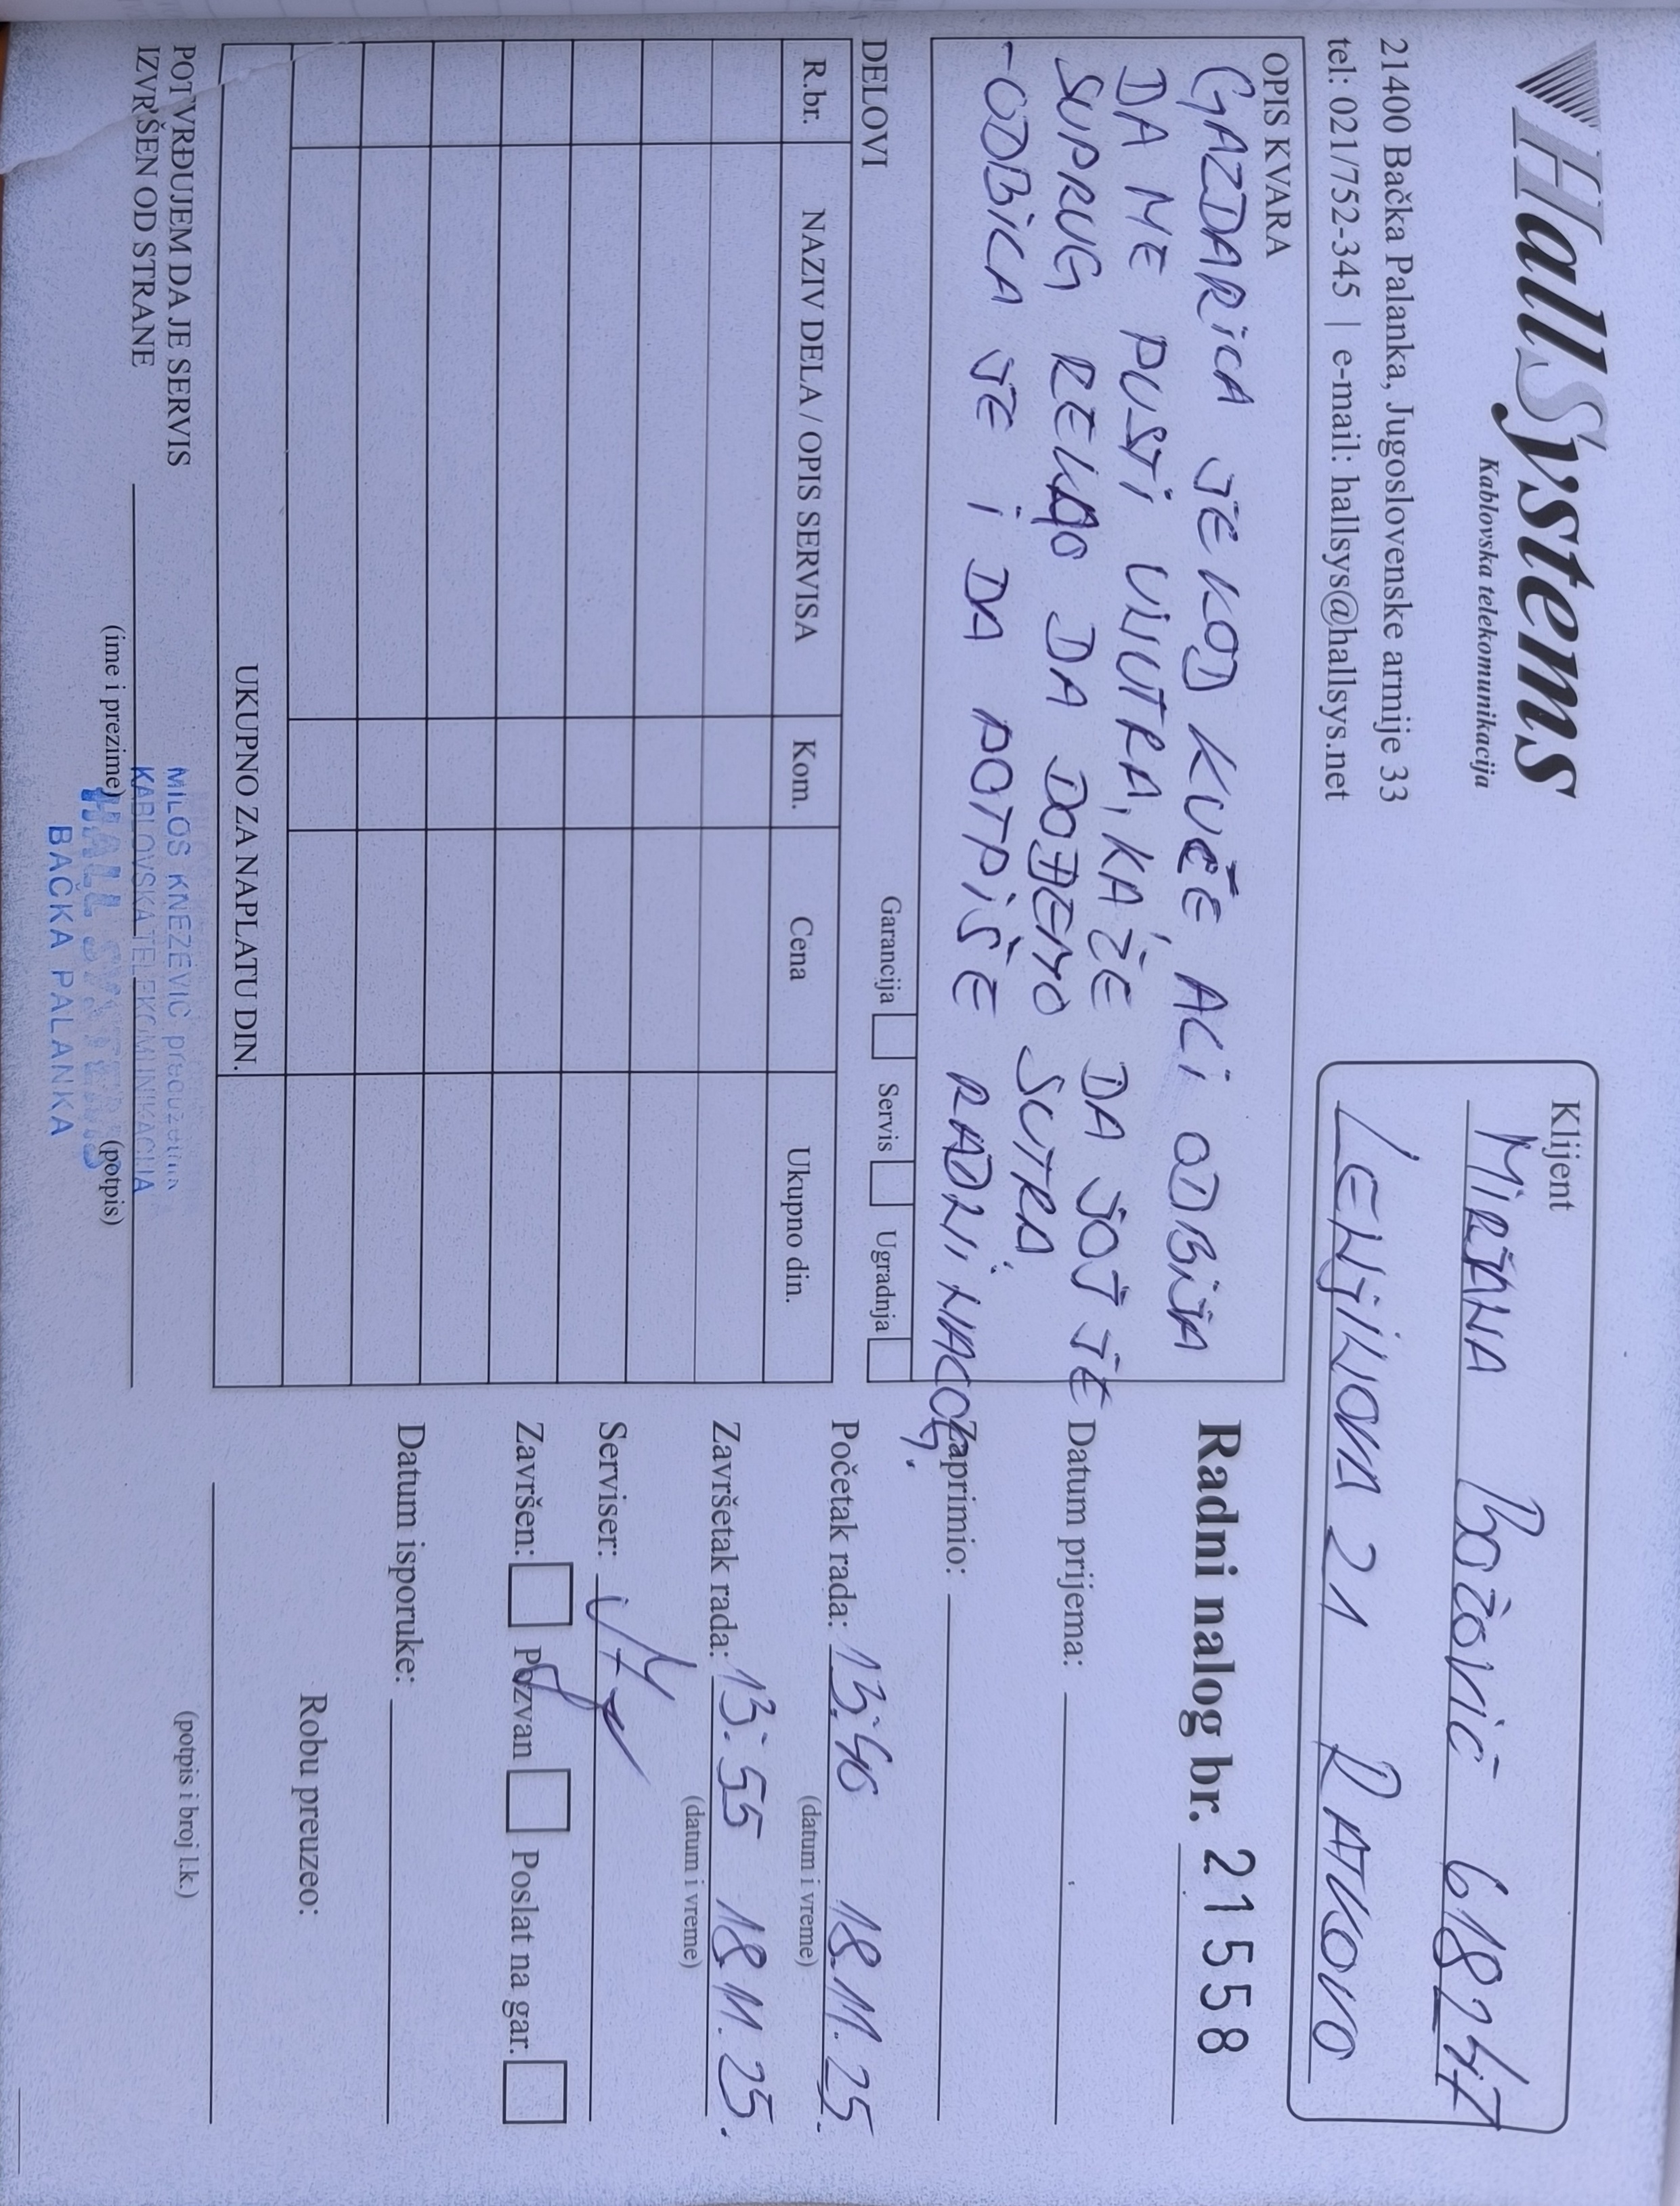 HallSystems
Kablovska telekomunikacija
21400 Bačka Palanka, Jugoslovenske armije 33
tel: 021/752-345 | e-mail: hallsys@hallsys.net
Klijent
MIRJANA BOŽOVIĆ 618747
LENJINOVA 21 RATKOVO
OPIS KVARA
GAZDARICA JE KOD KUĆE, ALI ODBIJA
DA ME PUSTI UNUTRA, KAŽE DA JOJ JE
SUPRUG REKAO DA DOĐEMO SUTRA.
-ODBILA JE I DA POTPIŠE RADNI NALOG.
Radni nalog br. 21558
Datum prijema:
Zaprimio:
Početak rada: 13:40 18.11.25.
(datum i vreme)
Završetak rada: 13:55 18.11.25.
(datum i vreme)
Serviser:
Završen: Pozvan Poslat na gar.
Datum isporuke:
Robu preuzeo:
(potpis i broj l.k.)
DELOVI
Garancija Servis Ugradnja
R.br. NAZIV DELA / OPIS SERVISA Kom. Cena Ukupno din.
UKUPNO ZA NAPLATU DIN.
POTVRĐUJEM DA JE SERVIS
IZVRŠEN OD STRANE
(ime i prezime) (potpis)
MILOŠ KNEŽEVIĆ preduzetnik
KABLOVSKA TELEKOMUNIKACIJA
HALL SYSTEMS
BAČKA PALANKA